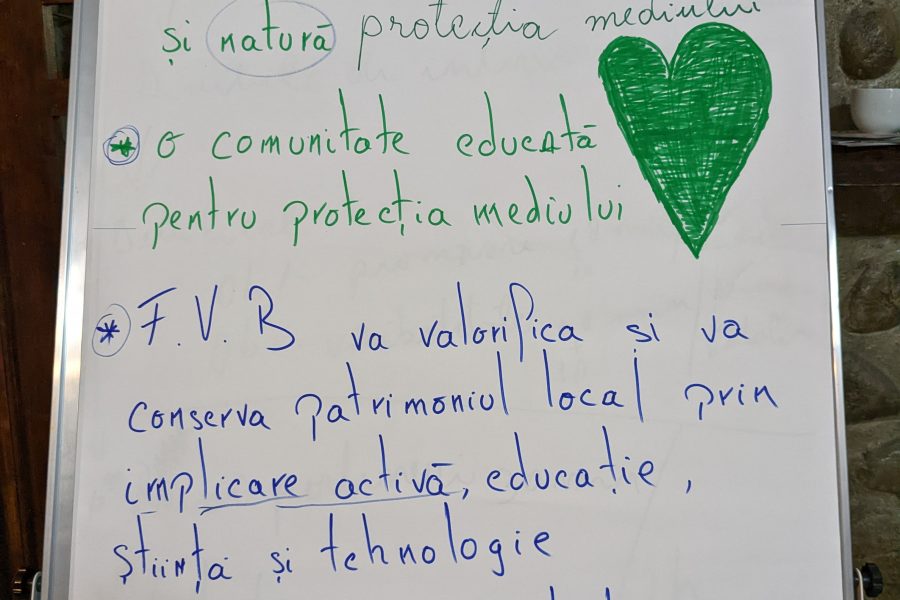 și natură protecția mediului
* O comunitate educată
pentru protecția mediului
* F.V.B va valorifica și va
conserva patrimoniul local prin
implicare activă, educație,
știință și tehnologie